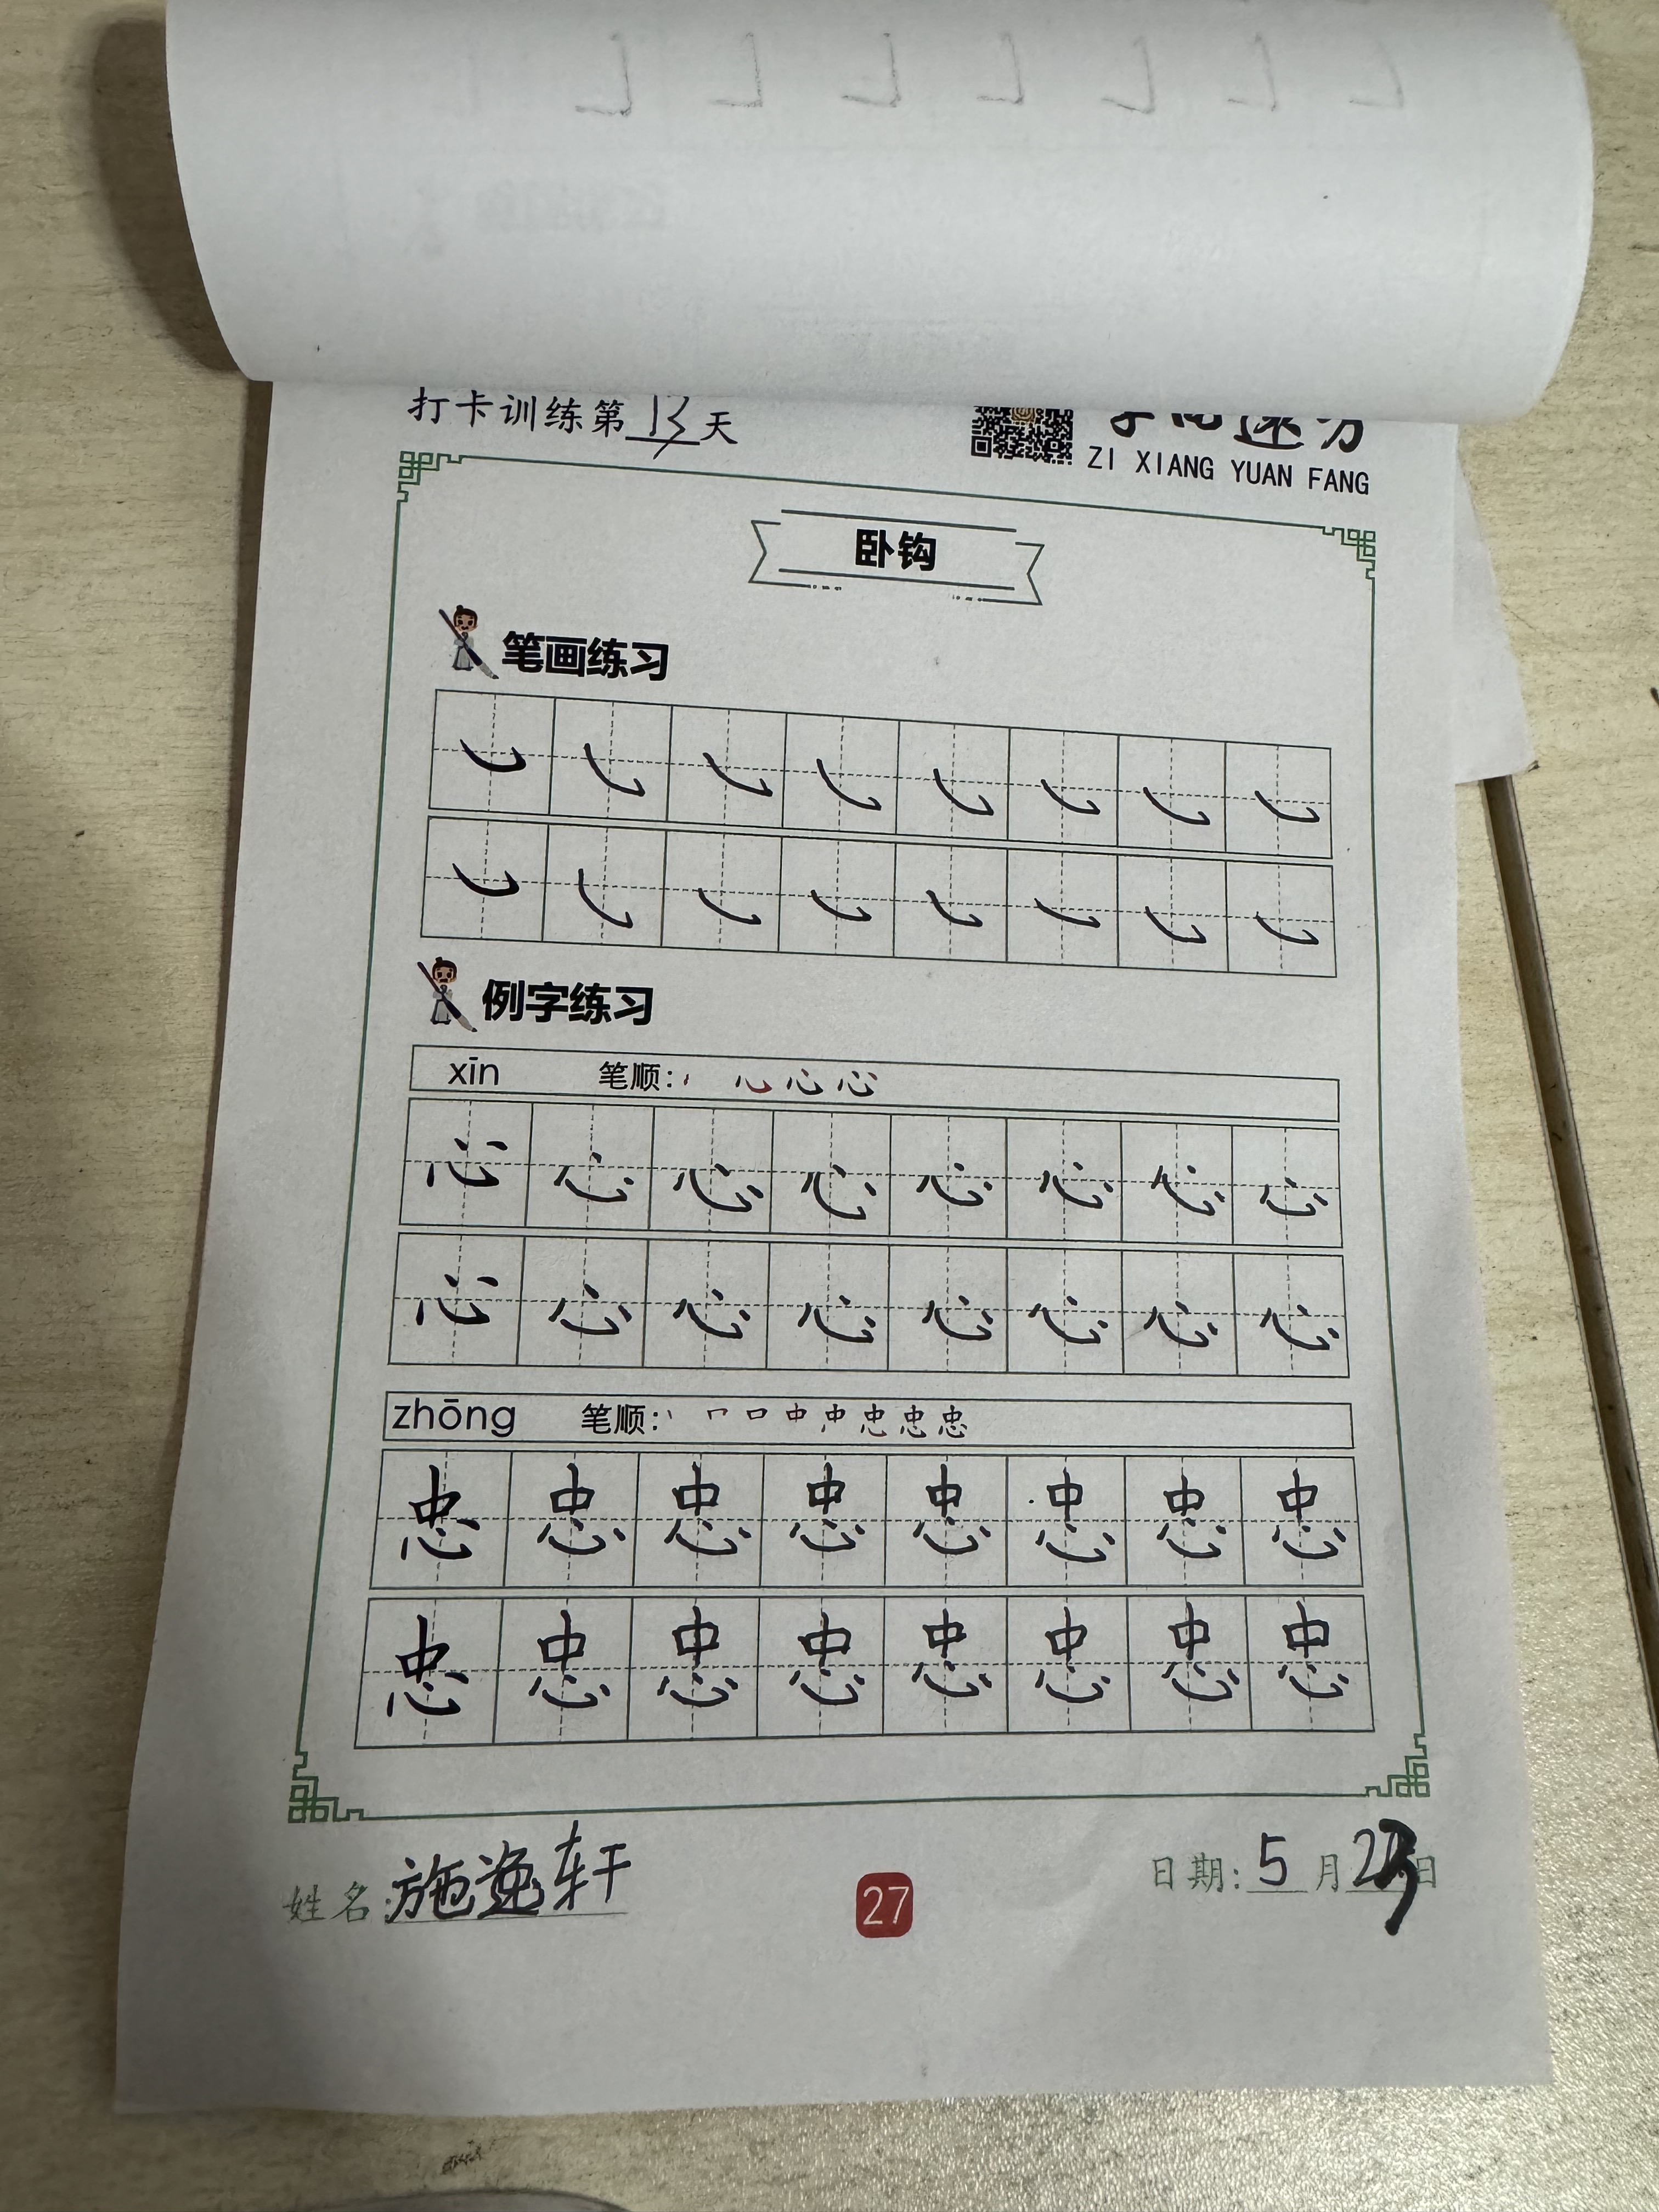 打卡训练第13天
ZI XIANG YUAN FANG
卧钩
笔画练习
例字练习
xīn 笔顺: 心
心 心 心 心 心 心 心 心
心 心 心 心 心 心 心 心
zhōng 笔顺: 丨 ㇕ 口 中 忠 忠 忠
忠 忠 忠 忠 忠 忠 忠 忠
忠 忠 忠 忠 忠 忠 忠 忠
姓名: 施逸轩
27
日期: 5月23日